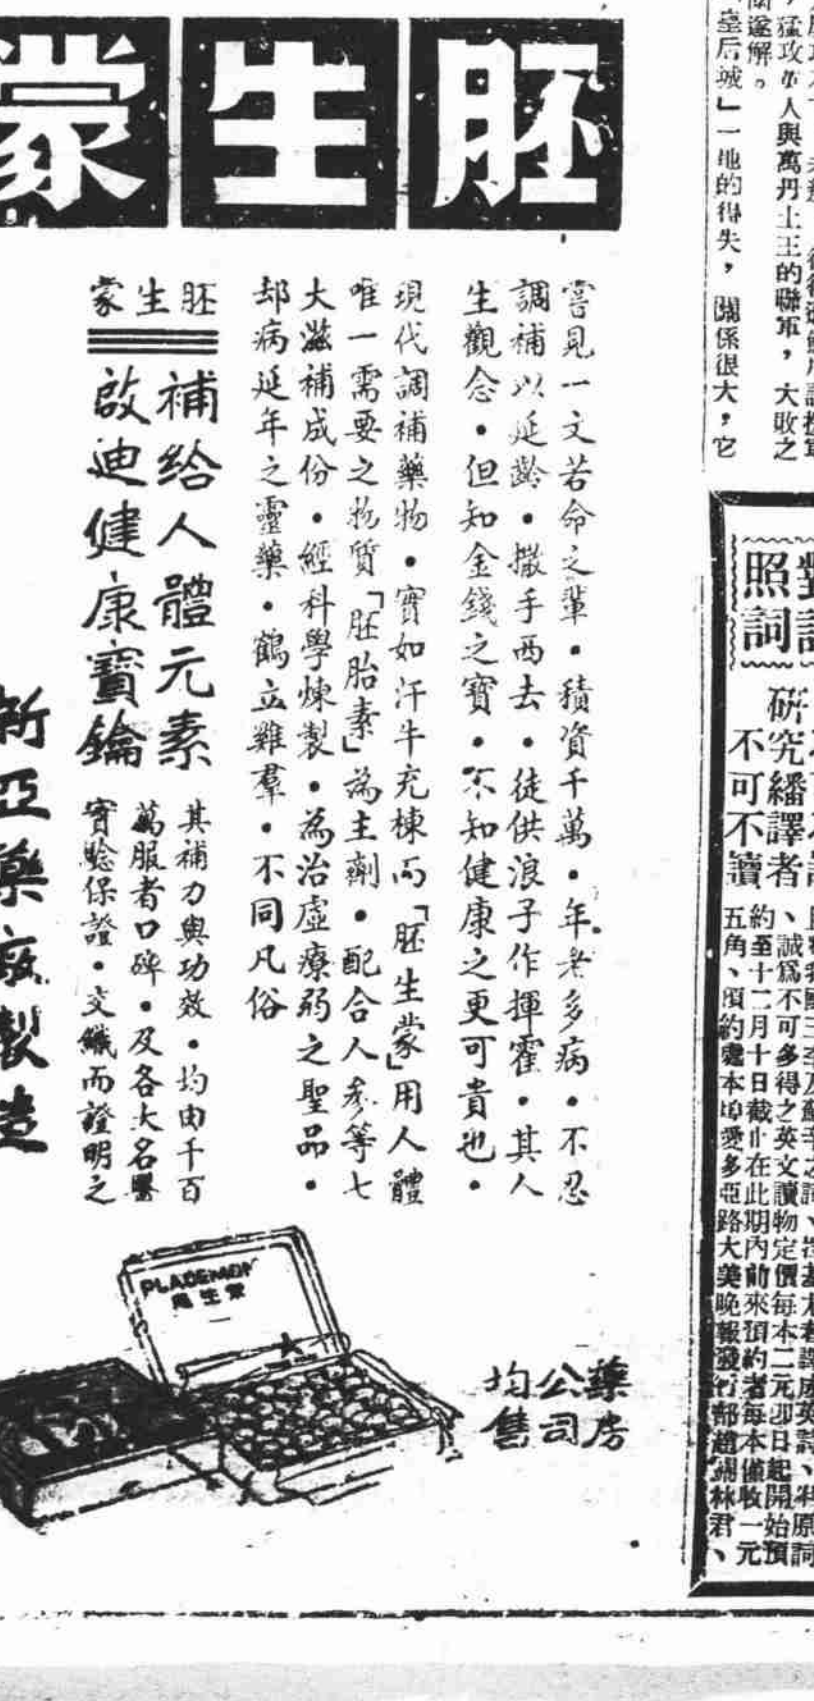 胚生蒙
嘗見一文若命之輩•積資千萬•年老多病•不忍
調補以延齡•撒手西去•徒供浪子作揮霍•其人
生觀念•但知金錢之寶•不知健康之更可貴也•
現代調補藥物•實如汗牛充棟而「胚生蒙」用人體
唯一需要之物質「胚胎素」為主劑•配合人參等七
大滋補成份•經科學煉製•為治虛療弱之聖品•
却病延年之靈藥•鶴立雞羣•不同凡俗
胚生蒙
補給人體元素
啟迪健康寶鑰
其補力與功效•均由千百
萬服者口碑•及各大名醫
實驗保證•交織而證明之
新亞藥廠製造
PLADEMON
胚生蒙
藥房
公司
均售
猛攻 人與萬丹土王的聯軍，大敗之
遂解。
皇后城」一地的得失，關係很大，它
對
照詞
研究繙譯者
不可不讀
、誠爲不可多得之英文讀物定價每本二元卽日起開始預
約至十二月十日截止在此期內前來預約者每本僅收一元
五角、預約處本埠愛多亞路大美晚報發行部趙 林君、